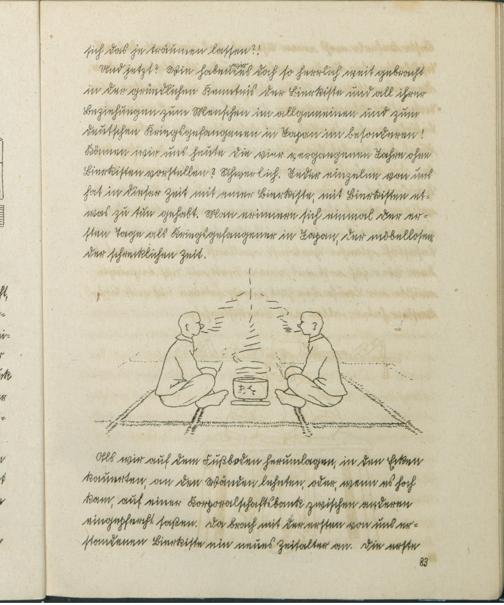 sich das je träumen lassen?!
Und jetzt? Wie haben wir's doch so herrlich weit gebracht
in der gründlichen Kenntnis der Bierkiste und all ihrer
Beziehungen zum Menschen im allgemeinen und zum
deutschen Kriegsgefangenen in Japan im besonderen!
Können wir uns heute die vier vergangenen Jahre ohne
Bierkisten vorstellen? Schwerlich. Jeder einzelne von uns
hat in dieser Zeit mit einer Bierkiste, mit Bierkisten et-
was zu tun gehabt. Man erinnere sich einmal der er-
sten Tage als Kriegsgefangener in Japan, der möbellosen,
der schrecklichen Zeit.
Als wir auf dem Fußboden herumlagen, in den Ecken
kauerten, an den Wänden lehnten, oder, wenn es hoch
kam, auf einer Korporalschaftsbank zwischen anderen
eingepfercht saßen. Da brach mit der ersten von uns er-
standenen Bierkiste ein neues Zeitalter an. Die erste
83